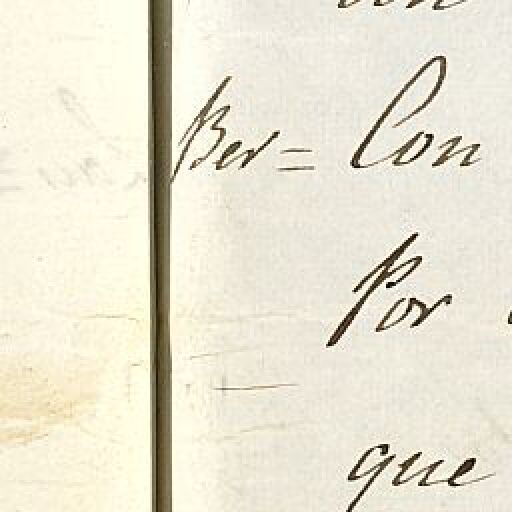 Ber= Con
Por
que